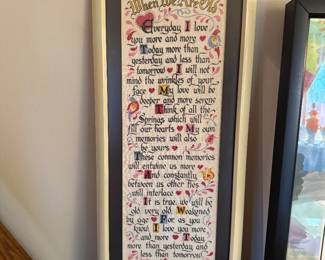 When We Are Old
Everyday I love
you more and more
Today more than
yesterday and less than
tomorrow I will not
mind the wrinkles of your
face My love will be
deeper and more serene
Think of all the
Springs which will
fill our hearts My own
memories will also
be yours
These common memories
will entwine us more
And constantly
between us other ties
will interlace
It is true, we will be
old very old, Weakened
by age For as you
know I love you
more and more Today
more than yesterday and
less than tomorrow.